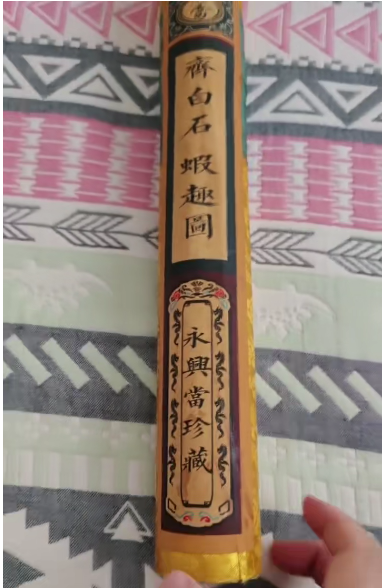 當
齊白石 蝦趣圖
永興當珍藏